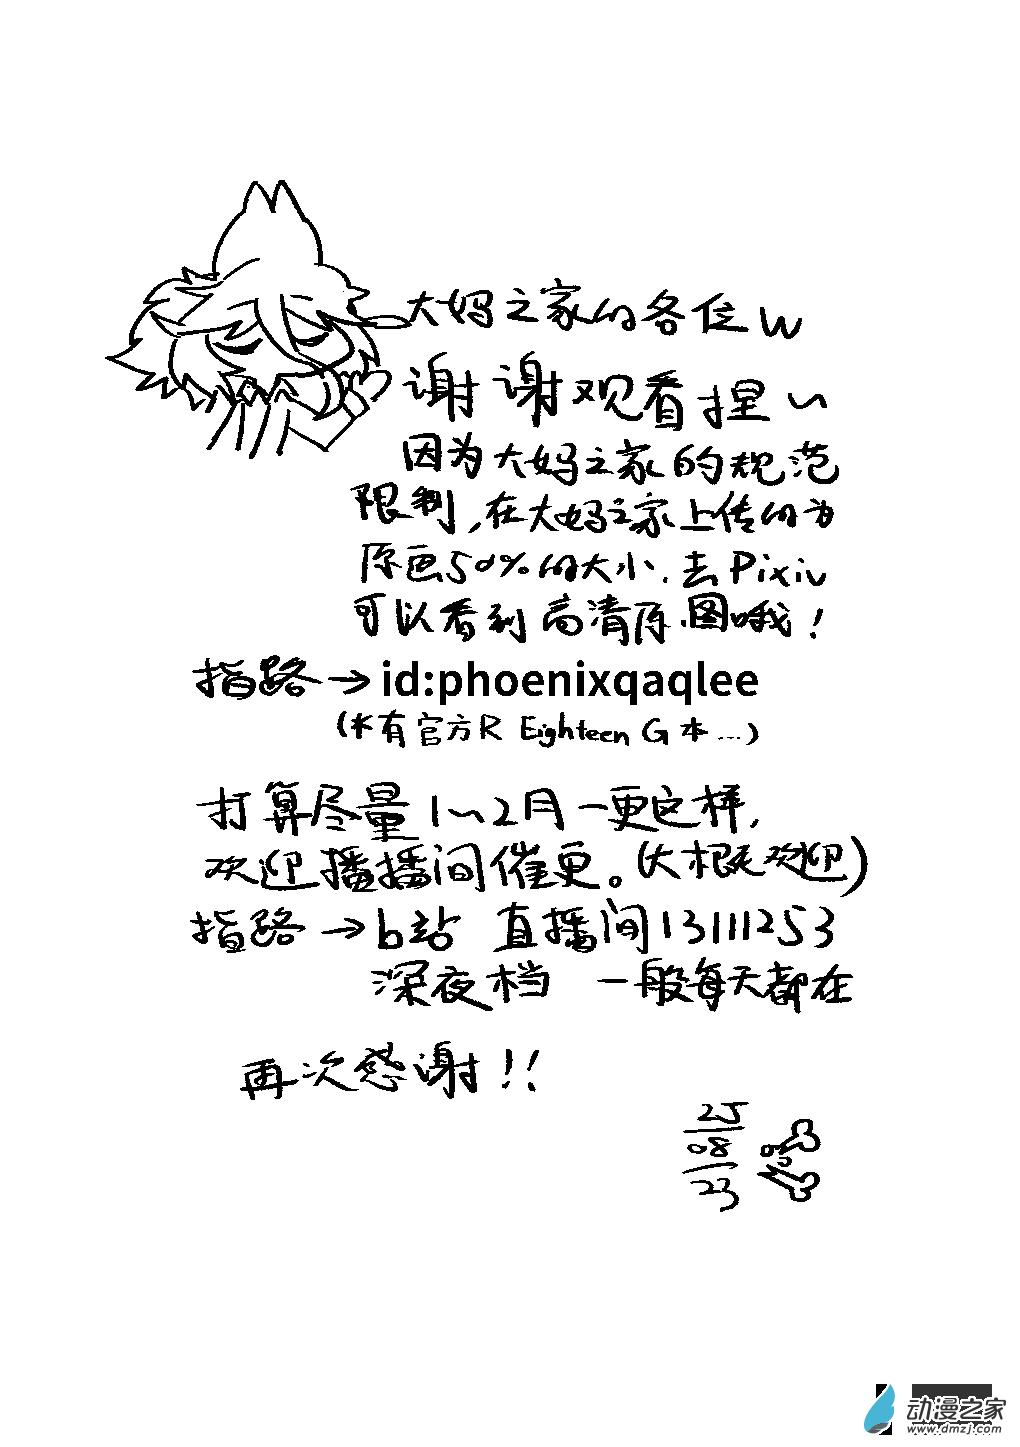 大妈之家的各位w
谢谢观看捏~
因为大妈之家的规范
限制,在大妈之家上传的为
原画50%的大小.去Pixiv
可以看到高清原图哦!
指路→id:phoenixqaqlee
(*有官方R Eighteen G本...)
打算尽量1~2月一更这样,
欢迎播播间催更。(大概无欢迎)
指路→b站 直播间13111253
深夜档 一般每天都在
再次感谢!!
25
08
23
动漫之家
www.dmzj.com